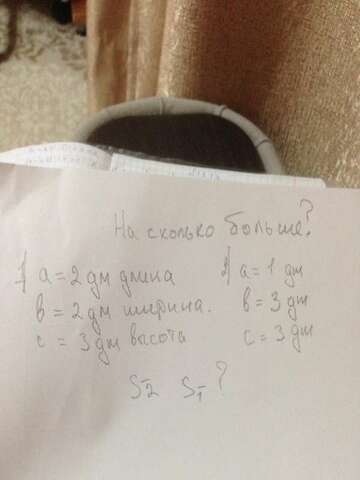 На сколько больше?
1) a = 2 дм длина
в = 2 дм ширина.
с = 3 дм васота
2) a = 1 дм
в = 3 дм
с = 3 дм
S2 S1 ?